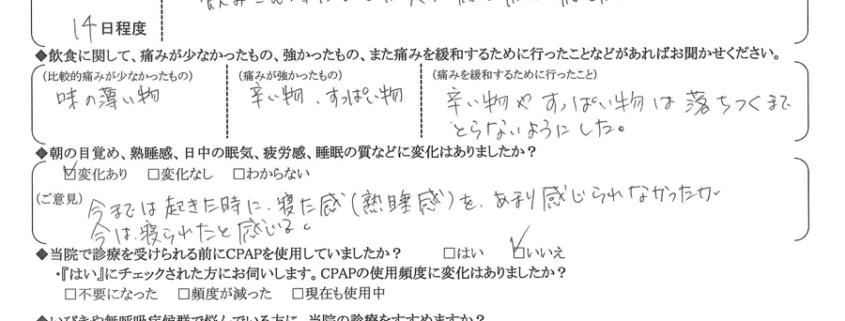 14日程度
◆飲食に関して、痛みが少なかったもの、強かったもの、また痛みを緩和するために行ったことなどがあればお聞かせください。
(比較的痛みが少なかったもの)
味の薄い物
(痛みが強かったもの)
辛い物、すっぱい物
(痛みを緩和するために行ったこと)
辛い物やすっぱい物は落ちつくまで
とらないようにした。
◆朝の目覚め、熟睡感、日中の眠気、疲労感、睡眠の質などに変化はありましたか？
☑変化あり □変化なし □わからない
(ご意見)
今までは起きた時に、寝た感(熟睡感)を、あまり感じられなかったが
今は、寝られたと感じる。
◆当院で診療を受けられる前にCPAPを使用していましたか？ □はい ☑いいえ
・『はい』にチェックされた方にお伺いします。CPAPの使用頻度に変化はありましたか？
□不要になった □頻度が減った □現在も使用中
◆いびきや無呼吸症候群で悩んでいる方に、当院の診療をすすめますか？